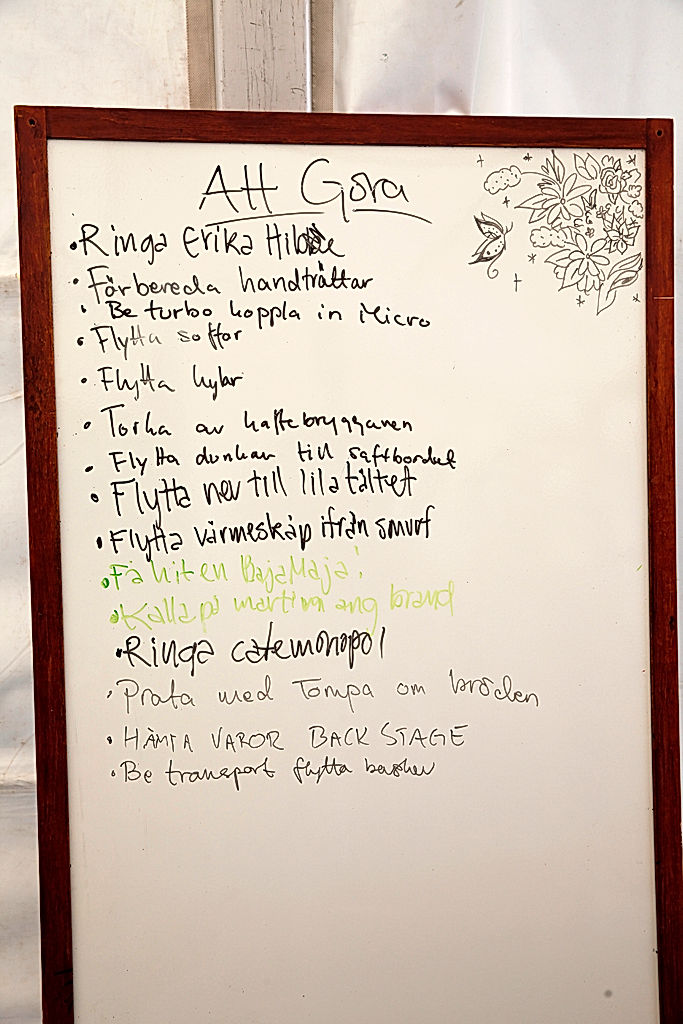 Att Göra
• Ringa Erika Hilb
• Förbereda handtråttar
• Be turbo koppla in Micro
• Flytta soffor
• Flytta kylar
• Torka av kaffebryggaren
• Flytta dunkar till saftbordet
• Flytta ner till lila tältet
• Flytta värmeskåp ifrån smurf
• Få hit en BajaMaja!
• Kalla på martin ang brand
• Ringa cafemonopol
• Prata med Tompa om bröden
• HÄMTA VAROR BACK STAGE
• Be transport flytta